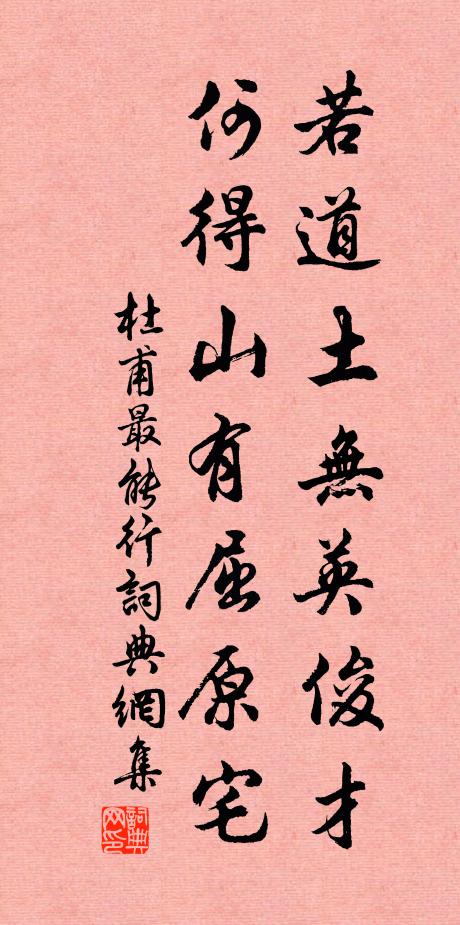 若道土無英俊才
何得山有屈原宅
杜甫最能行詞典網集
詞典網印